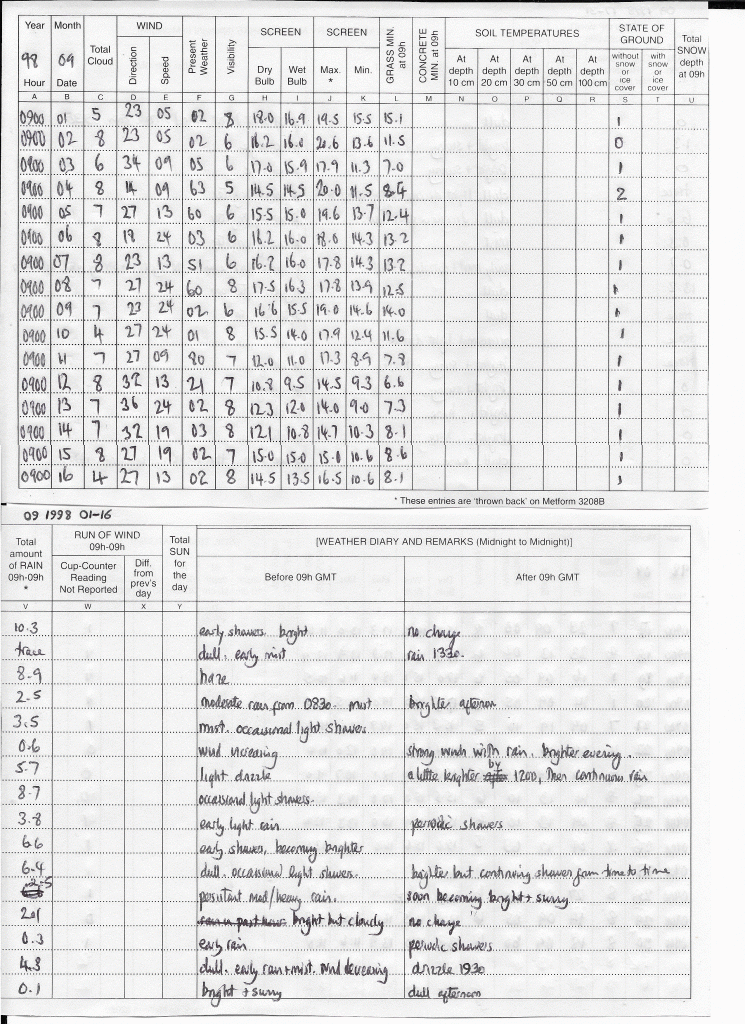 Year Month Total Cloud WIND Present Weather Visibility SCREEN SCREEN GRASS MIN. at 09h CONCRETE MIN. at 09h SOIL TEMPERATURES STATE OF GROUND Total SNOW depth at 09h
98 09 Direction Speed Dry Bulb Wet Bulb Max. * Min. At depth 10 cm At depth 20 cm At depth 30 cm At depth 50 cm At depth 100 cm without snow or ice cover with snow or ice cover
Hour Date
A B C D E F G H I J K L M N O P Q R S T U
0900 01 5 23 05 02 8 18.0 16.9 19.5 15.5 15.1 1
0900 02 8 23 05 02 6 16.2 16.0 20.6 13.6 11.5 0
0900 03 6 34 09 05 6 17.0 15.9 17.9 11.3 7.0 1
0900 04 8 14 09 63 5 14.5 14.5 20.0 11.5 8.4 2
0900 05 7 27 13 60 6 15.5 15.0 19.6 13.7 12.4 1
0900 06 8 18 24 03 6 16.2 16.0 18.0 14.3 13.2 1
0900 07 8 23 13 51 6 16.2 16.0 17.8 14.3 13.2 1
0900 08 7 27 24 60 8 17.5 16.3 17.8 13.9 12.5 1
0900 09 7 23 24 02 6 16.6 15.5 19.0 14.6 14.0 1
0900 10 4 27 24 01 8 15.5 14.0 17.9 12.4 11.6 1
0900 11 7 27 09 80 7 12.0 11.0 17.3 8.9 7.8 1
0900 12 8 32 13 21 7 10.8 9.5 14.5 9.3 6.6 1
0900 13 7 36 24 02 8 12.3 12.0 14.0 9.0 7.3 1
0900 14 7 32 19 03 8 12.1 10.8 14.7 10.3 8.1 1
0900 15 8 27 19 02 7 15.0 15.0 15.0 10.6 8.6 1
0900 16 4 27 13 02 8 14.5 13.5 16.5 10.6 8.1 1
* These entries are 'thrown back' on Metform 3208B
09 1998 01-16
Total amount of RAIN 09h-09h * RUN OF WIND 09h-09h Total SUN for the day [WEATHER DIARY AND REMARKS (Midnight to Midnight)]
Cup-Counter Reading Not Reported Diff. from prev's day Before 09h GMT After 09h GMT
V W X Y
10.3 early showers. bright no change
trace dull. early mist rain 1330.
8.9 haze
2.5 moderate rain from 0830. mist brighter afternoon
3.5 mist. occasional light showers
0.6 wind increasing strong winds with rain. brighter evening.
5.7 light drizzle a little brighter by 1200, then continuous rain
8.7 occasional light showers.
3.8 early light rain periodic showers
6.6 early showers, becoming brighter
6.4 dull. occasional light showers. brighter but continuing showers from time to time
persistant mod/heavy rain. soon becoming bright + sunny
2.1 bright but cloudy no change
0.3 early rain periodic showers
4.3 dull. early rain + mist. wind decreasing drizzle 1930
0.1 bright + sunny dull afternoon